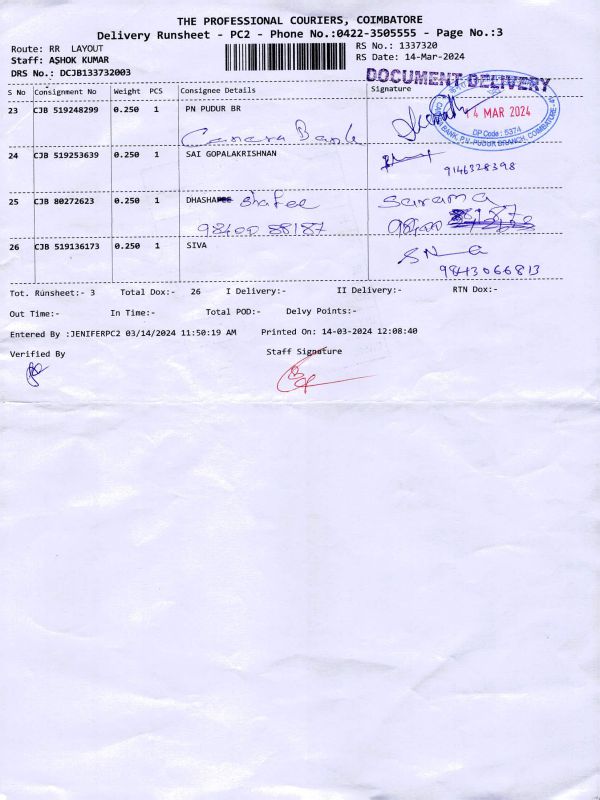 THE PROFESSIONAL COURIERS, COIMBATORE
Delivery Runsheet - PC2 - Phone No.:0422-3505555 - Page No.:3
Route: RR LAYOUT
RS No.: 1337320
Staff: ASHOK KUMAR
RS Date: 14-Mar-2024
DRS No.: DCJB133732003
DOCUMENT DELIVERY
S No Consignment No Weight PCS Consignee Details Signature
23 CJB 519248299 0.250 1 PN PUDUR BR
14 MAR 2024
DP Code : 5374
BANK, P.N. PUDUR BRANCH, COIMBATORE
Canara Bank
24 CJB 519253639 0.250 1 SAI GOPALAKRISHNAN
9146328398
25 CJB 80272623 0.250 1 Shafee
98400 88187 98400
26 CJB 519136173 0.250 1 SIVA
9843066813
Tot. Runsheet:- 3 Total Dox:- 26 I Delivery:- II Delivery:- RTN Dox:-
Out Time:- In Time:- Total POD:- Delvy Points:-
Entered By :JENIFERPC2 03/14/2024 11:50:19 AM Printed On: 14-03-2024 12:08:40
Verified By Staff Signature